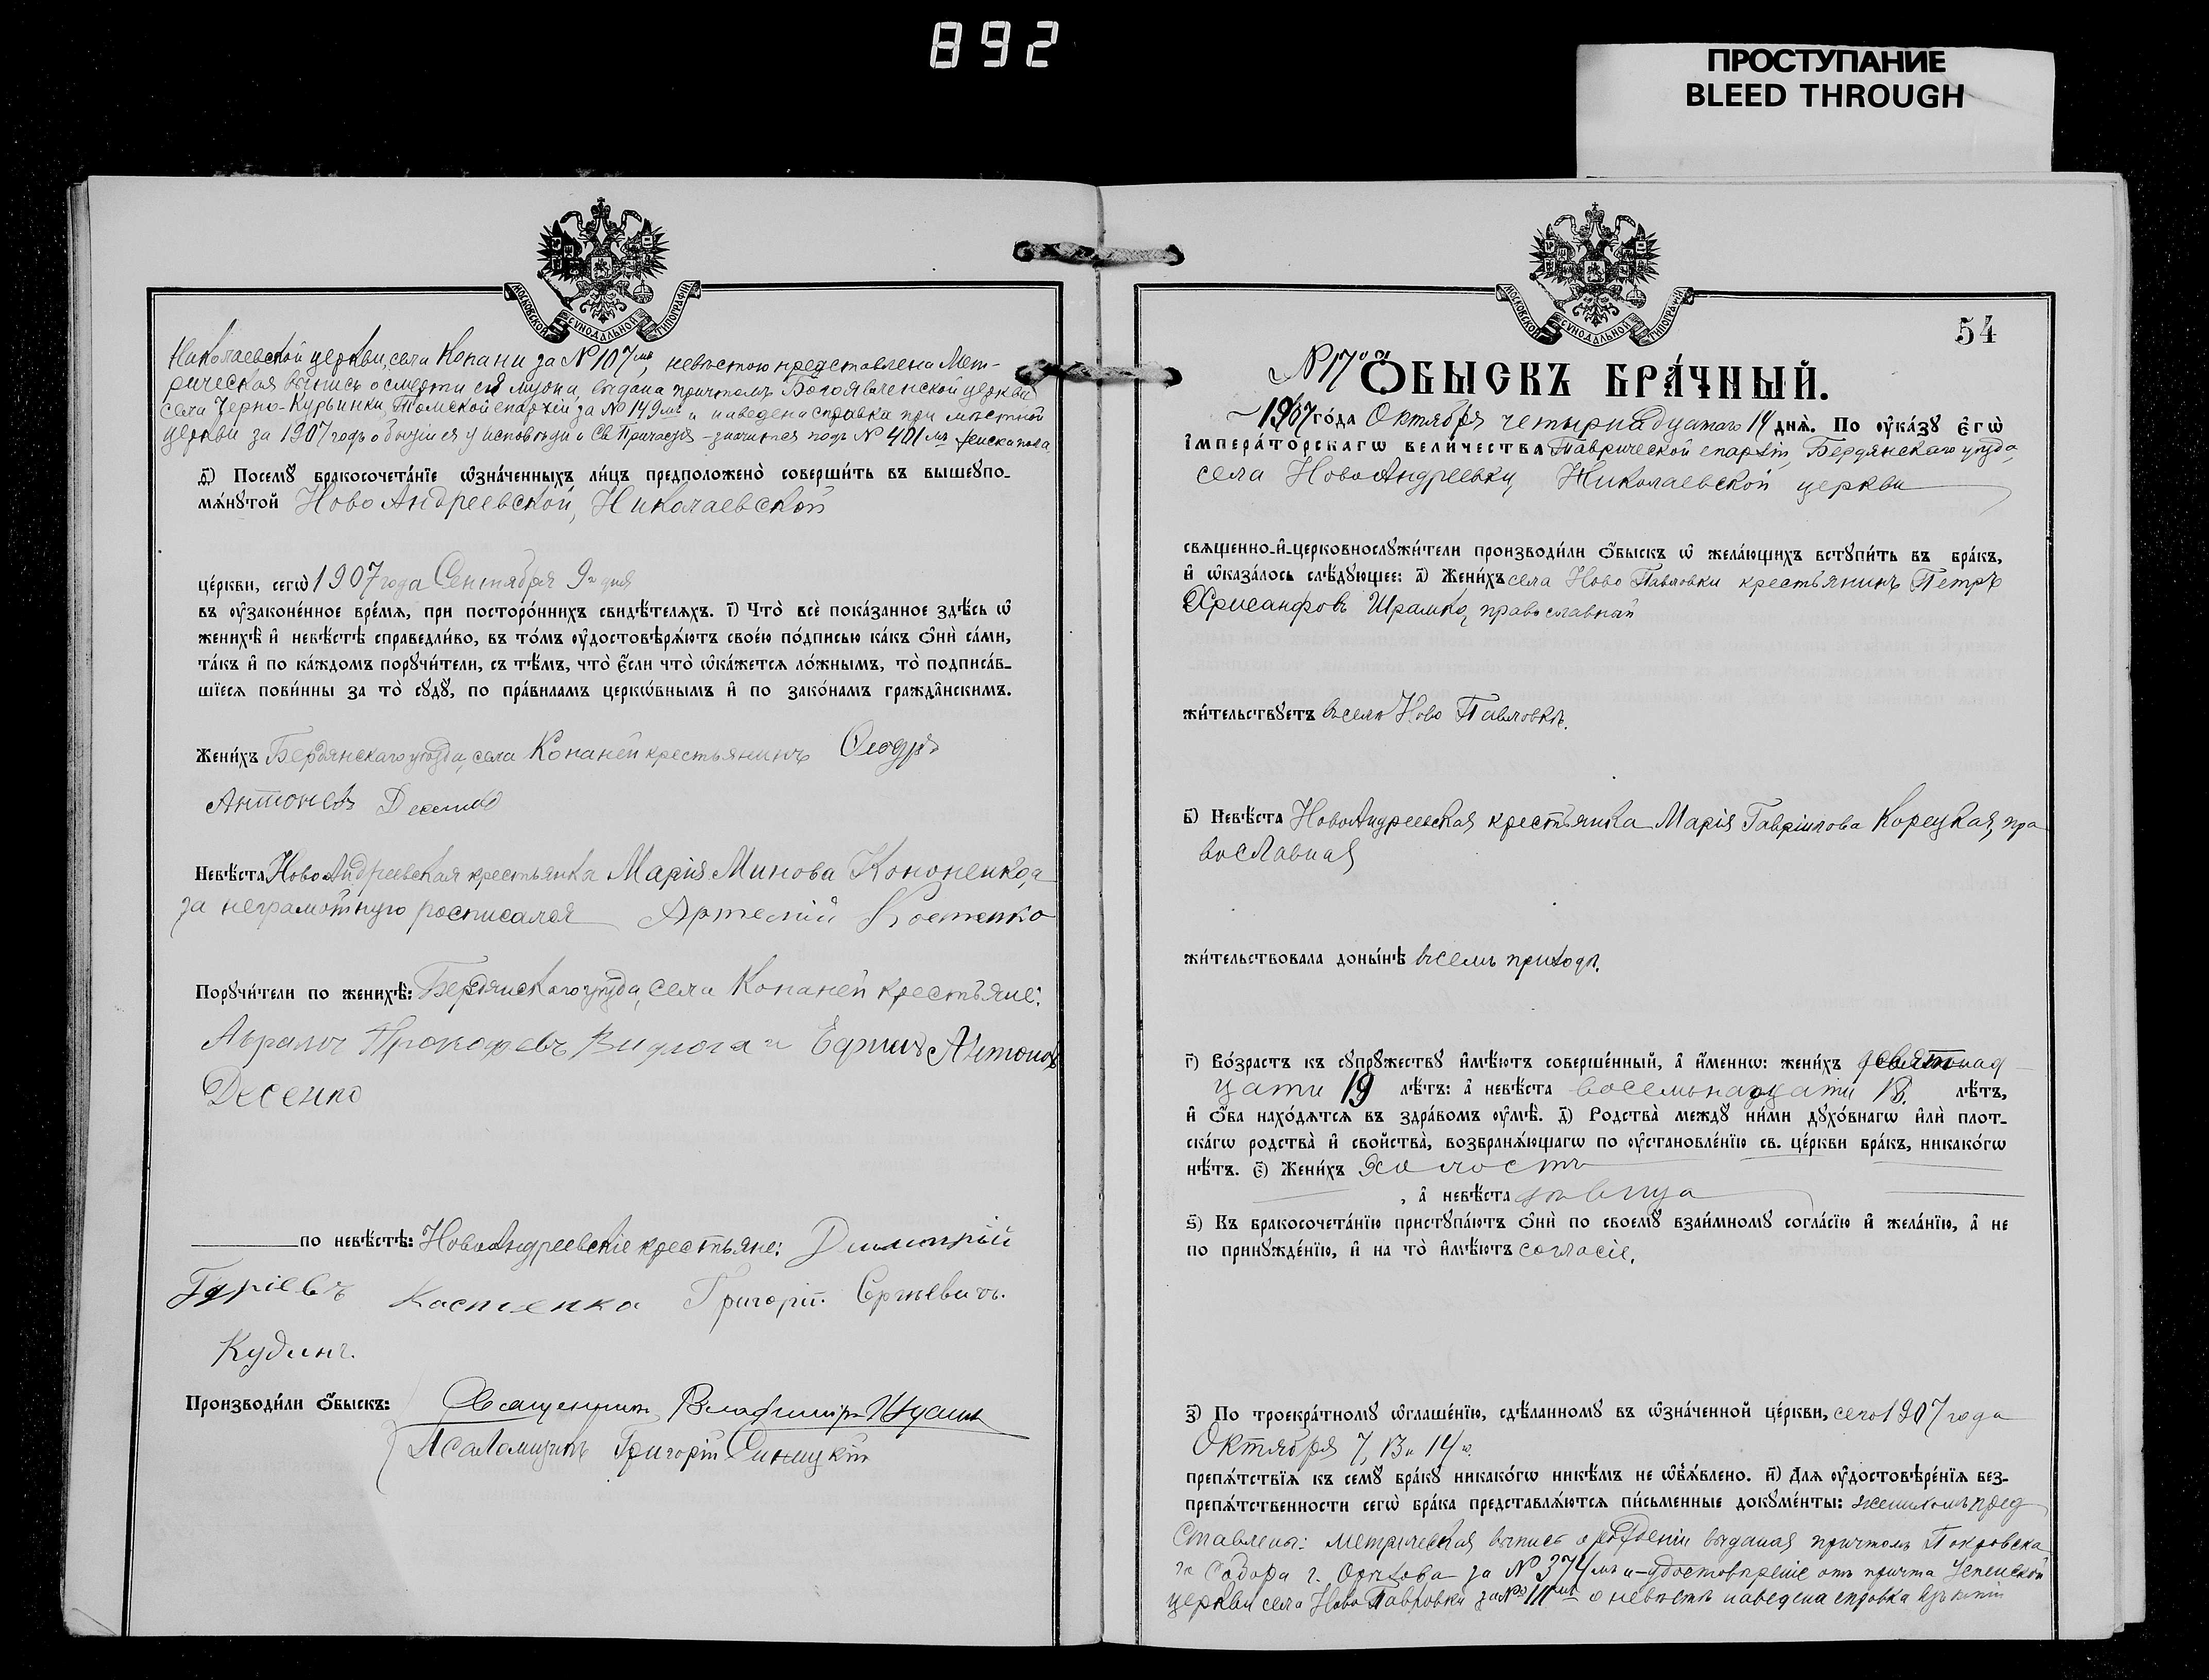 892
ПРОСТУПАНИЕ
BLEED THROUGH
МОСКОВСКОЙ СѴНОДАЛЬНОЙ ТИПОГРАФІИ
Николаевской церкви, села Копани за № 107мъ, невѣстою представлена Мет-
рическая выпись о смерти ея мужа, выдана причтомъ Богоявленской церкви
села Черно-Курьинки, Томской епархіи за № 149мъ и наведена справка при мѣстной
церкви за 1907 годъ о бытіи ея у исповѣди и Св. Причастія – значится подъ № 401мъ
д҃) Посемꙋ̀ бракосочета́нїе ѡ҆зна́ченныхъ ли́цъ предположено̀ соверши́ть въ вышеꙋпо-
мѧ́нꙋтой Ново Андреевской, Николаевской
це́ркви, сегѡ̀ 1907 года Сентября 9го дня
въ ᲂу҆законе́нное вре́мѧ, при посторо́ннихъ свидѣ́телѧхъ. і҃) Что̀ всѐ пока́занное здѣ́сь ѡ҆
женихѣ̀ и҆ невѣ́стѣ справедли́во, въ то́мъ ᲂу҆достовѣрѧ́ютъ свое́ю по́дписью ка́къ ѻ҆нѝ са́ми,
та́къ и҆ по ка́ждомъ порꙋчи́тели, съ тѣ́мъ, что̀ є҆́сли что̀ ѡ҆ка́жетсѧ ло́жнымъ, то̀ подписа́в-
шїесѧ пови́нны за то̀ сꙋдꙋ̀, по пра́виламъ церкѡ́внымъ и҆ по зако́намъ гражда̑нскимъ.
Жени́хъ Бердянскаго уѣзда, села Копаней крестьянинъ Ѳеодръ
Антоновъ
Невѣ́ста Ново Андреевская крестьянка Марія Минова Кононенкова
за неграмотную росписался Артемій Костенко
Порꙋчи́тели по женихѣ̀: Бердянскаго уѣзда, села Копаней крестьяне:
Авраамъ Прокофевъ Видлога и Ефимъ Антоновъ
Десенко
по невѣ́стѣ: НовоАндреевскіе крестьяне: Димитрій
Гуріевъ Костенко Григорій Сергѣевичъ
Кудинъ.
Производи́ли ѻ҆́быскъ: Священникъ Владиміръ
Псаломщикъ Григорій Синицкій
МОСКОВСКОЙ СѴНОДАЛЬНОЙ ТИПОГРАФІИ
54
№ 17й Ѻ҆́БЫСКЪ БРА́ЧНЫЙ.
1907 го́да Октября четырнадцатаго 14 днѧ̀. По ᲂу҆ка́зꙋ Є҆гѡ̀
І҆мпера́торскагѡ вели́чества Таврической епархіи, Бердянскаго уѣзда,
села НовоАндреевки, Николаевской церкви
свѧщенно-и҆-церковнослꙋжи́тели производи́ли ѻ҆́быскъ ѡ҆ жела́ющихъ встꙋпи́ть въ бра́къ,
и҆ ѡ҆каза́лось слѣ́дꙋющее: а҃) Жени́хъ села Ново Павловки крестьянинъ Петръ
Хрисанфовъ Шрамко, православный
жи́тельствꙋетъ въ селѣ Ново Павловкѣ.
в҃) Невѣ́ста НовоАндреевская крестьянка Марія Гавріилова Корецкая, пра
вославная
жи́тельствовала доны́нѣ въ семъ приходѣ.
г҃) Во́зрастъ къ сꙋпрꙋ́жествꙋ и҆мѣ́ютъ соверше́нный, а҆ и҆́меннѡ: жени́хъ девятнад
цати 19 лѣ́тъ: а҆ невѣ́ста восемьнадцати 18. лѣ́тъ,
и҆ ѻ҆́ба нахо́дѧтсѧ въ здра́вомъ ᲂу҆мѣ̀. д҃) Родства̀ междꙋ̀ ни́ми дꙋхо́внагѡ и҆лѝ плот-
ска́гѡ родства̀ и҆ свойства̀, возбранѧ́ющагѡ по ᲂу҆становле́нїю св. це́ркви бра́къ, никако́гѡ
нѣ́тъ. є҃) Жени́хъ холостъ
, а҆ невѣ́ста дѣвица
ѕ҃) Къ бракосочета́нїю пристꙋпа́ютъ ѻ҆нѝ по своемꙋ̀ взаи́мномꙋ согла́сїю и҆ жела́нїю, а҆ не
по принꙋжде́нїю, и҆ на то̀ и҆мѣ́ютъ согласіе.
з҃) По троекра́тномꙋ ѡ҆глаше́нїю, сдѣ́ланномꙋ въ ѡ҆зна́ченной це́ркви, сего 1907 года
Октября 7, 13 и 14го
препѧ́тствїѧ къ семꙋ̀ бра́кꙋ никако́гѡ никѣ́мъ не ѡ҆б̾ѧ́влено. и҃) Длѧ ᲂу҆достовѣре́нїѧ без-
препѧ́тственности сегѡ̀ бра́ка представлѧ́ютсѧ пи́сьменные докꙋме́нты: женихомъ пред
ставлены: метрическая выпись о рожденіи выданая причтомъ Покровска
го Собора г. Орѣхова за № 374мъ и удостовѣреніе отъ причта Успенской
церкви села НовоПавловки за № 111мъ о невѣстѣ наведена справка